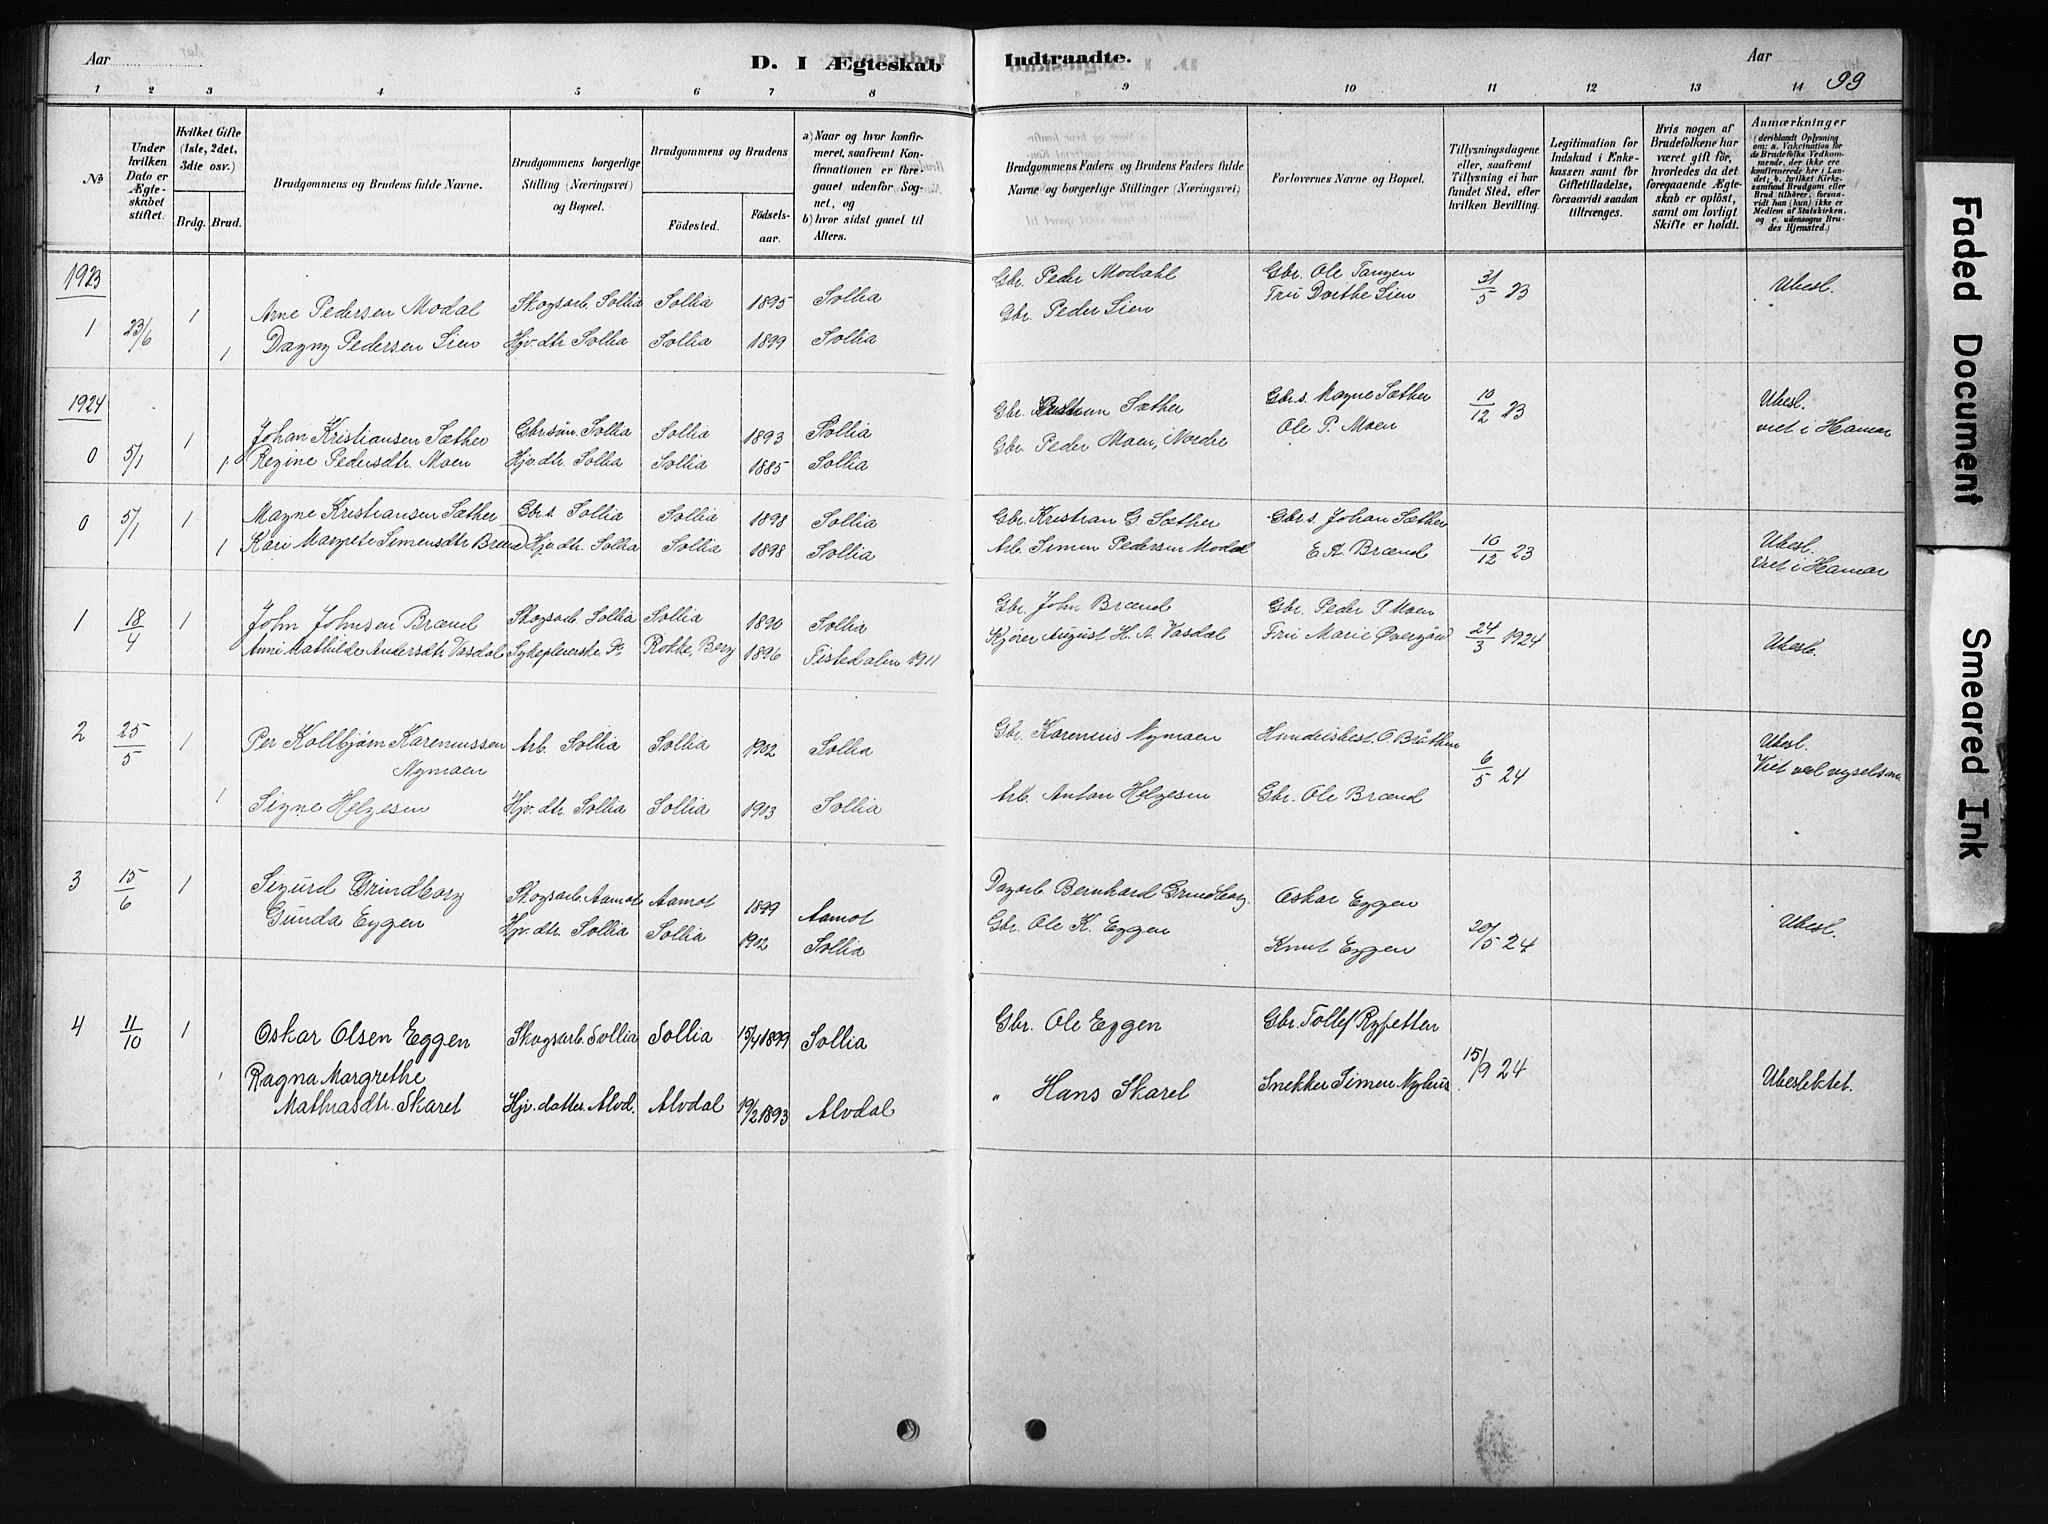 Aar
D. I Ægteskab Indtraadte.
Aar
99
1 2 3 4 5 6 7 8 9 10 11 12 13 14
№
Under hvilken Dato er Ægteskabet stiftet.
Hvilket Gifte (1ste, 2det, 3die osv.)
Brdg. Brud.
Brudgommens og Brudens fulde Navne.
Brudgommens borgerlige Stilling (Næringsvei) og Bopæl.
Brudgommens og Brudens
Födested.
Födselsaar.
a) Naar og hvor konfirmeret, saafremt Konfirmationen er foregaaet udenfor Sognet, og
b) hvor sidst gaaet til Alters.
Brudgommens Faders og Brudens Faders fulde Navne og borgerlige Stillinger (Næringsvei)
Forlovernes Navne og Bopæl.
Tillysningsdagene eller, saafremt Tillysning ei har fundet Sted, efter hvilken Bevilling.
Legitimation for Indskud i Enkekassen samt for Giftetilladelse, forsaavidt saadan tiltrænges.
Hvis nogen af Brudefolkene har været gift för, hvorledes da det foregaaende Ægteskab er oplöst, samt om lovligt Skifte er holdt.
Anmærkninger
(deriblandt Oplysning om: a. Vakcination for de Brudefolks Vedkommende, der ikke ere konfirmerede her i Landet; b. hvilket Kirkesamfund Brudgom eller Brud tilhörer, forsaavidt han (hun) ikke er Medlem af Statskirken, og c. udensogns Brudes Hjemsted.)
1923
1 23/6 1 Arne Pedersen Modal Skogsarb. Sollia Sollia 1895 Sollia Gbr. Peder Modahl Gbr. Ole Tangen 31/5 23 Ubesl.
1 Dagny Pedersen Lien Hjv. dtr. Sollia Sollia 1899 Sollia Gbr. Peder Lien Fru Dorthe Lien
1924
0 5/1 1 Johan Kristiansen Sæther Gbrsøn. Sollia Sollia 1893 Sollia Gbr. Sæther Gbr.s. Magne Sæther 10/12 23 Ubesl.
viet i Hamar
1 Regine Pedersdtr. Moen Hjv. dtr. Sollia Sollia 1885 Sollia Gbr. Peder Moen, Nordre Ole P. Moen
0 5/1 1 Magne Kristiansen Sæther Gbr.s. Sollia Sollia 1898 Sollia Gbr. Kristian G. Sæther Gbr.s. Johan Sæther
1 Kari Margrete Simensdtr Brænd Hjv. dtr. Sollia Sollia 1898 Sollia Arb. Simen Pedersen Modal E. A. Brænd 10/12 23 Ubesl.
Viet i Hamar
1 18/4 1 John Johnsen Brænd Skogsarb. Sollia Sollia 1890 Sollia Gbr. John Brænd Gbr. Peder P. Moen
Anne Mathilde Andersdtr. Vasdal Sykepleierske Rokke, Berg 1896 Tistedalen 1911 Kjører August H. A. Vasdal Fru Marie Øvergård 24/3 1924 Ubesl.
2 25/5 1 Per Kolbjørn Karenussen Arb. Sollia Sollia 1902 Sollia Gbr. Karenius Nymoen Handelsbest. O. Bråthen Ubesl.
Nymoen 6/5 24 Viet ved
1 Signe Helgesen Hjv. dtr. Sollia Sollia 1903 Sollia Arb. Anton Helgesen Gbr. Ole Brænd
3 15/6 1 Sigurd Grindborg Skogsarb. Aamot Aamot 1899 Aamot Dagarb. Bernhard Grindborg. Oskar Eggen
Gunda Eggen Hjv. dtr. Sollia Sollia 1902 Sollia Gbr. Ole K. Eggen Knut Eggen 20/5 24 Ubesl.
4 11/10 1 Oskar Olsen Eggen Skogsarb. Sollia Sollia 15/4 1899 Sollia Gbr. Ole Eggen Gbr. Tollef Rypetten
1 Ragna Margrethe 15/9 24
Mathiasdtr. Skaret Hjv. datter. Alvd. Alvdal 19/2 1893 Alvdal " Hans Skaret Snekker Simen Nyhus Ubeslektet.
Faded Document
Smeared Ink